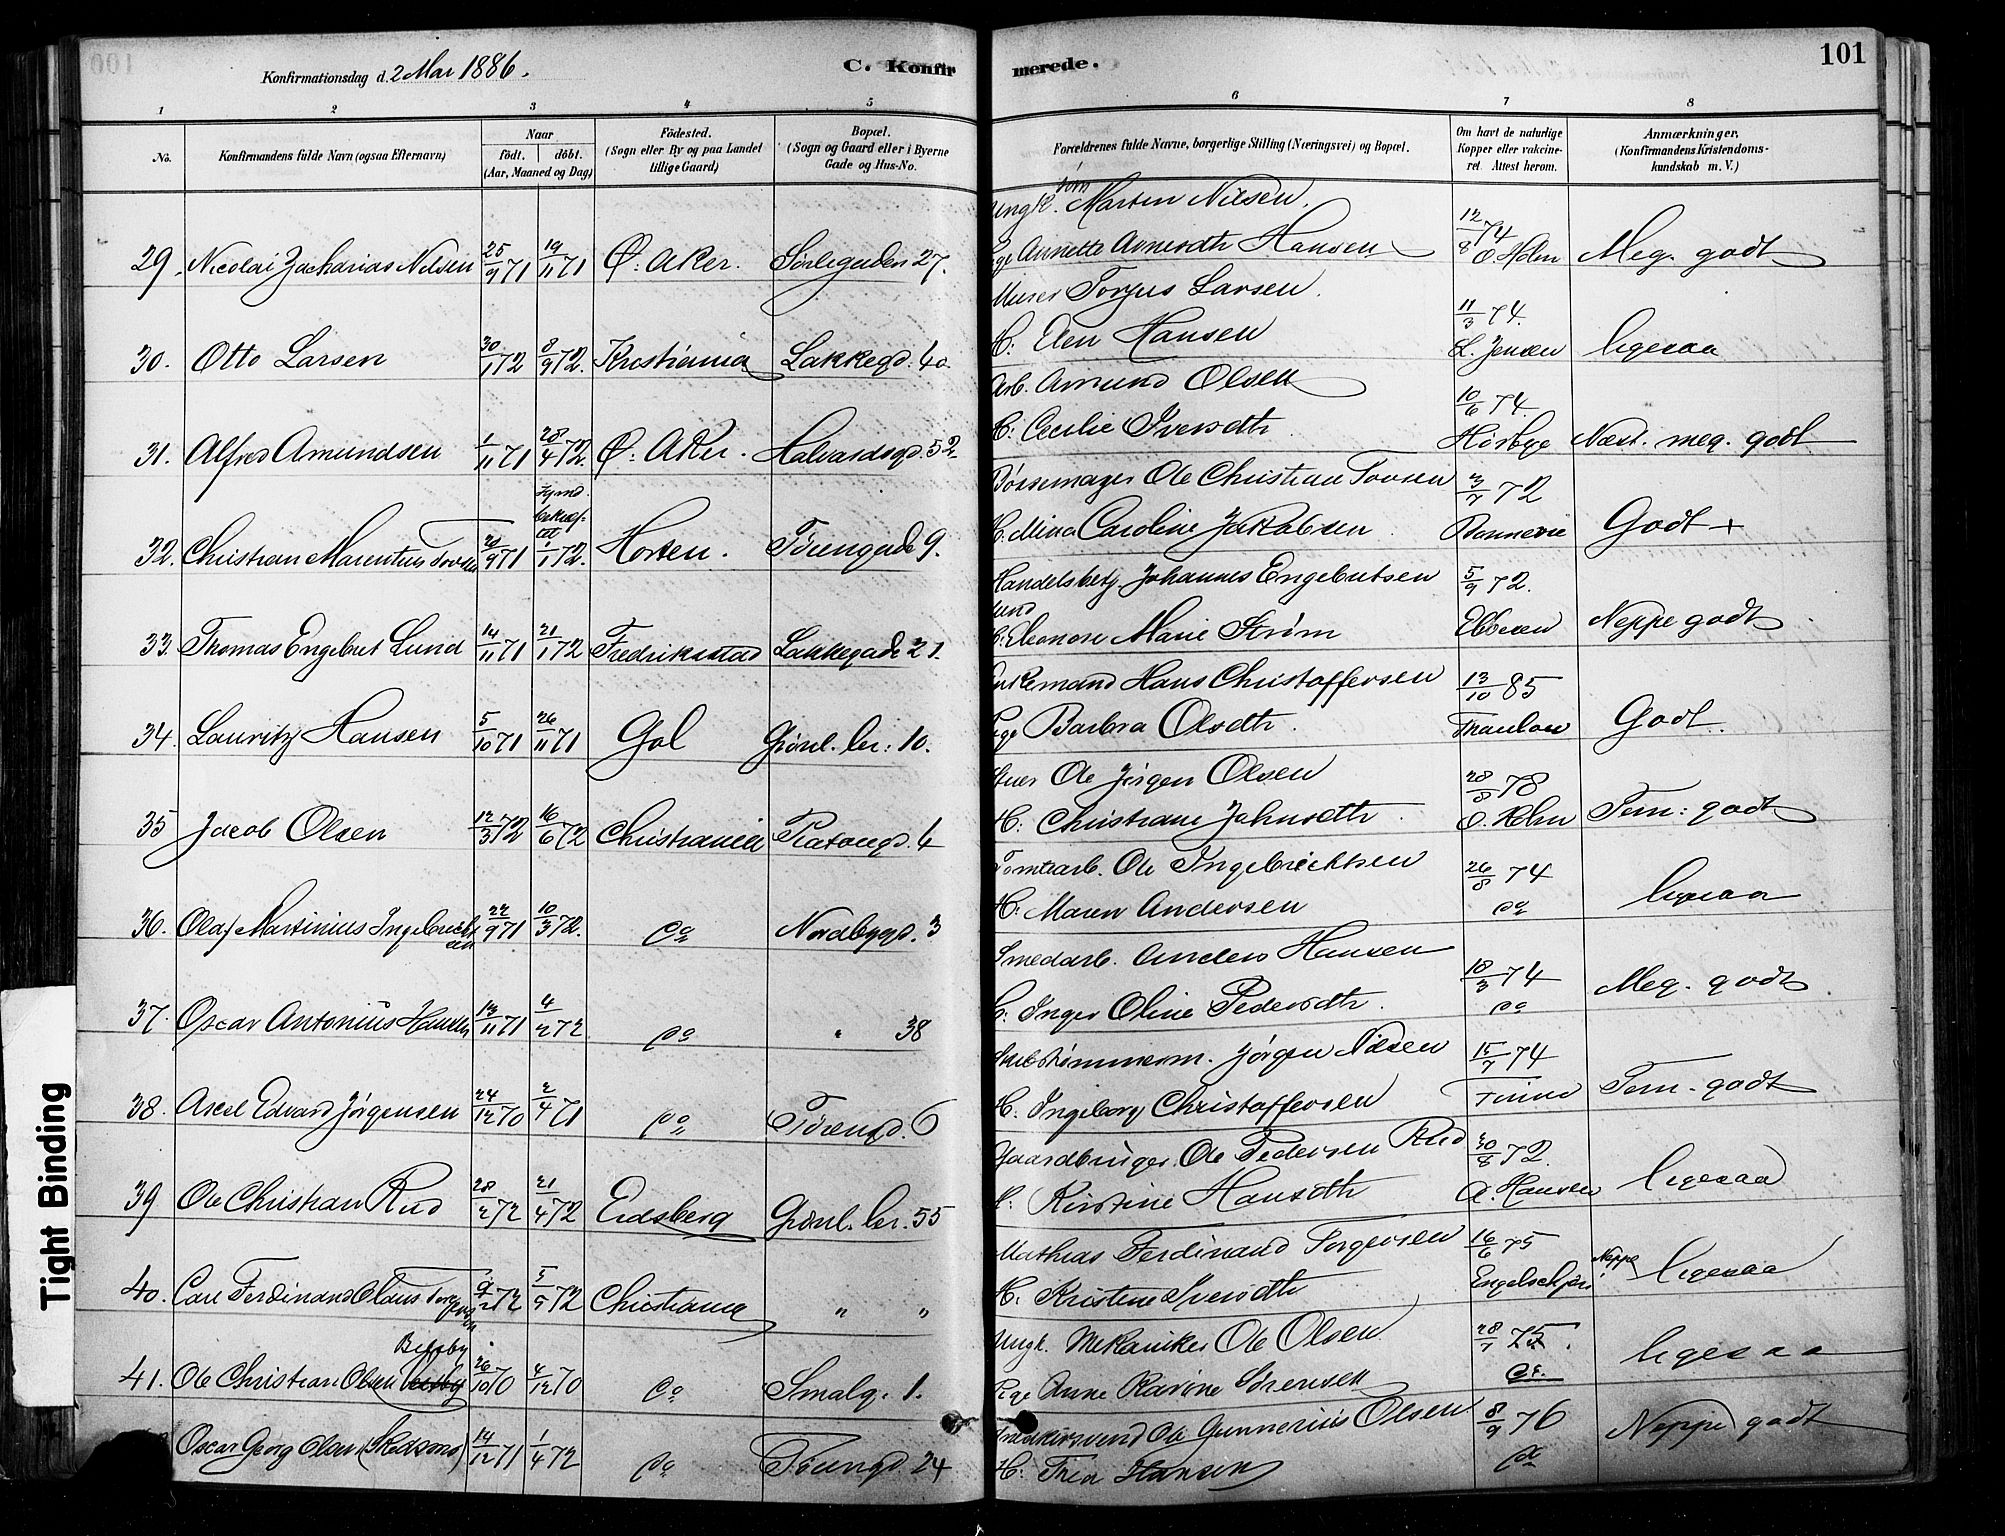 100
Konfirmationsdag d. 2 Mai 1886.
C. Konfirmerede.
101
1 2 3 4 5 6 7 8
No.
Konfirmandens fulde Navn (ogsaa Efternavn)
Naar
födt. döbt.
(Aar, Maaned og Dag)
Födested.
(Sogn eller By og paa Landet
tillige Gaard)
Bopæl.
(Sogn og Gaard eller i Byerne
Gade og Hus-No.
Forældrenes fulde Navne, borgerlige Stilling (Næringsvei) og Bopæl.
Om havt de naturlige
Kopper eller vakcine-
ret. Attest herom.
Anmærkninger.
(Konfirmandens Kristendoms-
kundskab m. V.)
Ungk. Martin Nilsen.
29. Nicolai Zacharias Nilsen 25/9 71 19/11 71 Ø. Aker. Sörligaden 27. Pge Annette Arnesdtr Hansen 12/8 74 O. Holm Meg. godt
Murer Torjus Larsen.
30. Otto Larsen 30/1 72 8/9 72. Kristiania Lakkegd. 40. H. Elen Hansen 11/3 74. L. Jensen ligesaa
Arb. Amund Olsen
31. Alfred Amundsen 1/11 71 28/4 72. Ø. Aker. Halvardsgd. 52 H. Cecilie Iversdtr. 10/6 74. Hörbye Næst. meg. godt
Börsemager Ole Christian Tovsen
32. Christian Marentius Tovsen 20/9 71 1/1 72. Horten. Töiengade 9. H. Mina Caroline Jakobsen 3/7 72 Bonnevie Godt +
Handelsbetj. Johannes Engebretsen Lund
33. Thomas Engebret Lund 14/11 71 21/1 72 Fredrikstad Lakkegade 21. H. Eleonore Marie Ström 5/9 72. Ebbesen Neppe godt
Enkemand Hans Christoffersen
34. Lauritz Hansen 5/10 71 26/11 71 Gol Grönl. ler: 10. Pge Barbra Olsdtr. 13/10 85 Thaulow Godt.
Ole Jörgen Olsen
35 Jacob Olsen 12/3 72 16/6 72 Christiania Platougd. 4 H: Christiane Johnsdtr. 28/8 78 O. Holm Tem: godt
Tomtearb. Ole Ingebrichtsen
36. Olaf Martinius Ingebrichtsen 22/9 71 10/3 72. do Nordbygd. 3 H: Maren Andersen 26/8 74 do ligesaa
Smedarb. Anders Hansen
37. Oscar Antonius Hansen 13/11 71 4/2 72 do " 38 H: Inger Oline Pedersdtr. 18/3 74 do Meg. godt
Jörgen Nilsen
38. Axel Edvard Jörgensen 24/12 70 2/4 71 do Töiengd. 6 H. Ingeborg Christoffersen 15/7 74 Tem. godt
Gaardbruger Ole Pedersen Rud
39 Ole Christian Rud 28/2 72 21/4 72 Eidsberg Grönl. ler. 55 H. Kirstine Hansdtr 30/8 72. A. Hansen ligesaa
Mathias Ferdinand Torgersen
40. Carl Ferdinand Olaus Torgersen 9/2 72 5/5 72 Christiania " " H. Kristine Iversdtr 16/6 75 Neppe ligesaa
Ungk. Mekaniker Ole Olsen
41. Ole Christian Olsen 26/10 70 4/12 70 do Smalg. 1. Pge Anne Karine Sörensen 28/7 75. do. ligesaa
Ole Gunnerius Olsen
Oscar Georg Olsen (Skedsmo) 14/12 71 1/4 72 do Töiengd. 24 H: Thea Hansen 8/9 76 do Neppe godt
Tight Binding